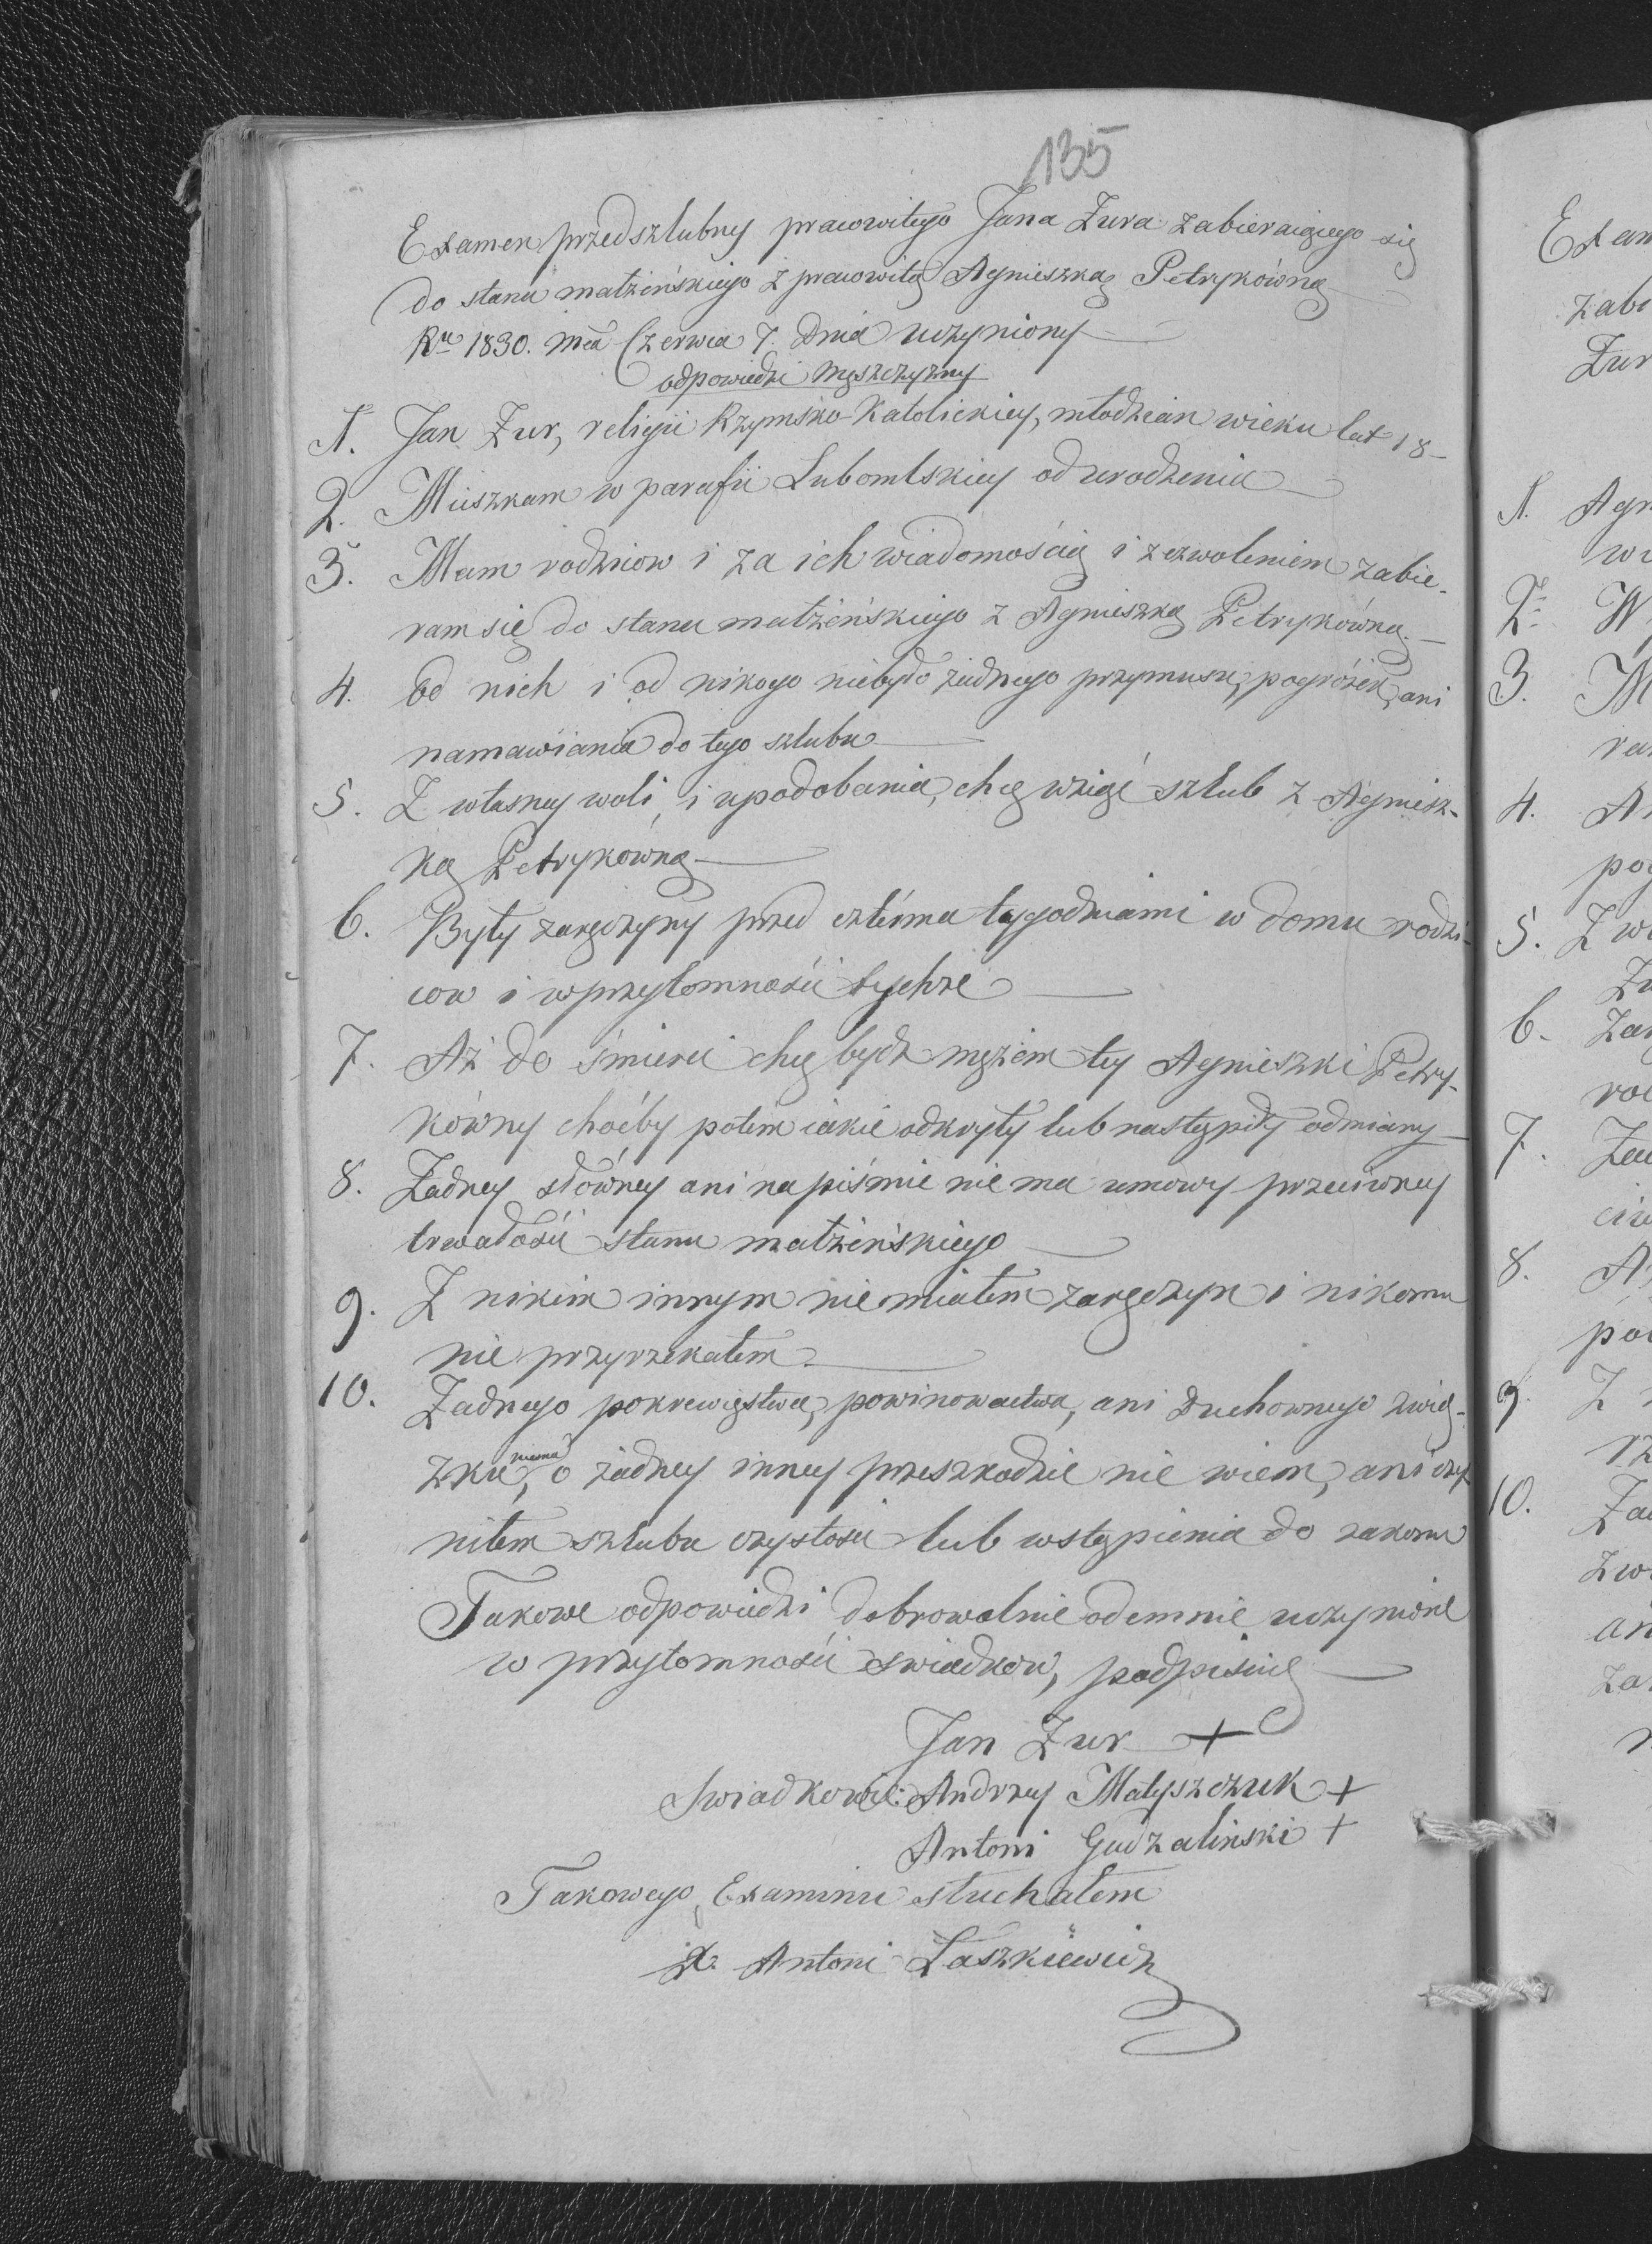 135
Examen przedszlubny pracowitego Jana Zura zabieraiącego się
do stanu małżeńskiego z pracowitą Agnieszką Petrykówną
Ru 1830. mca Czerwca 7. dnia uczyniony
odpowiedzi męszczyzny
1. Jan Zur, religii Rzymsko-Katolickiey, młodzian wieku lat 18
2. Mieszkam w parafii Lubomlskiey od urodzenia
3. Mam rodziców i za ich wiadomością i zezwoleniem zabie-
ram się do stanu małżeńskiego z Agnieszką Petrykówną.
4. Od nich i od nikogo niebyło żadnego przymusu, pogróżek, ani
namawiania do tego szlubu
5. Z własney woli, i upodobania, chcę wziąć szlub z Agniesz-
ką Petrykówną
6. Były zaręczyny przed cztérma tygodniami w domu rodzi-
cow i w przytomności tychże
7. Aż do śmierci chcę bydź mężem tey Agnieszki Petry-
kówny choćby potem iakie odkryły lub nastąpiły odmiany
8. Żadney słówney ani na piśmie nie ma umowy przeciwney
trwałości stanu małżeńskiego
9. Z nikim innym nie miałem zaręczyn i nikomu
nie przyrzekałem
10. Żadnego pokrewięstwa, powinowactwa, ani duchownego zwią-
zku, niema o żadney inney przeszkodzie nie wiem, ani czy-
niłem szlubu czystości lub wstąpienia do zakonu
Takowe odpowiedzi dobrowolnie odemnie uczynione
w przytomności swiadkow, podpisuię
Jan Zur +
Swiadkowie: Andrzey Matyszczuk +
Antoni Gudzaliński +
Takowego Examinu słuchałem
X. Antoni Łaszkiewicz
Exam
zabi
Zur
1. Agn
wi
2. W
3. M
ra
4. A
pog
5. Z wł
Zu
6. Zar
rod
7. Zaw
ciw
8. A
po
9. Z
rz
10. Żad
zwi
an
za